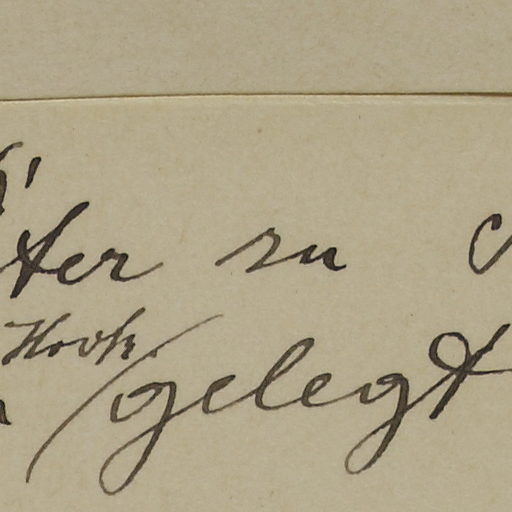 ter zu
Hovk.
gelegt